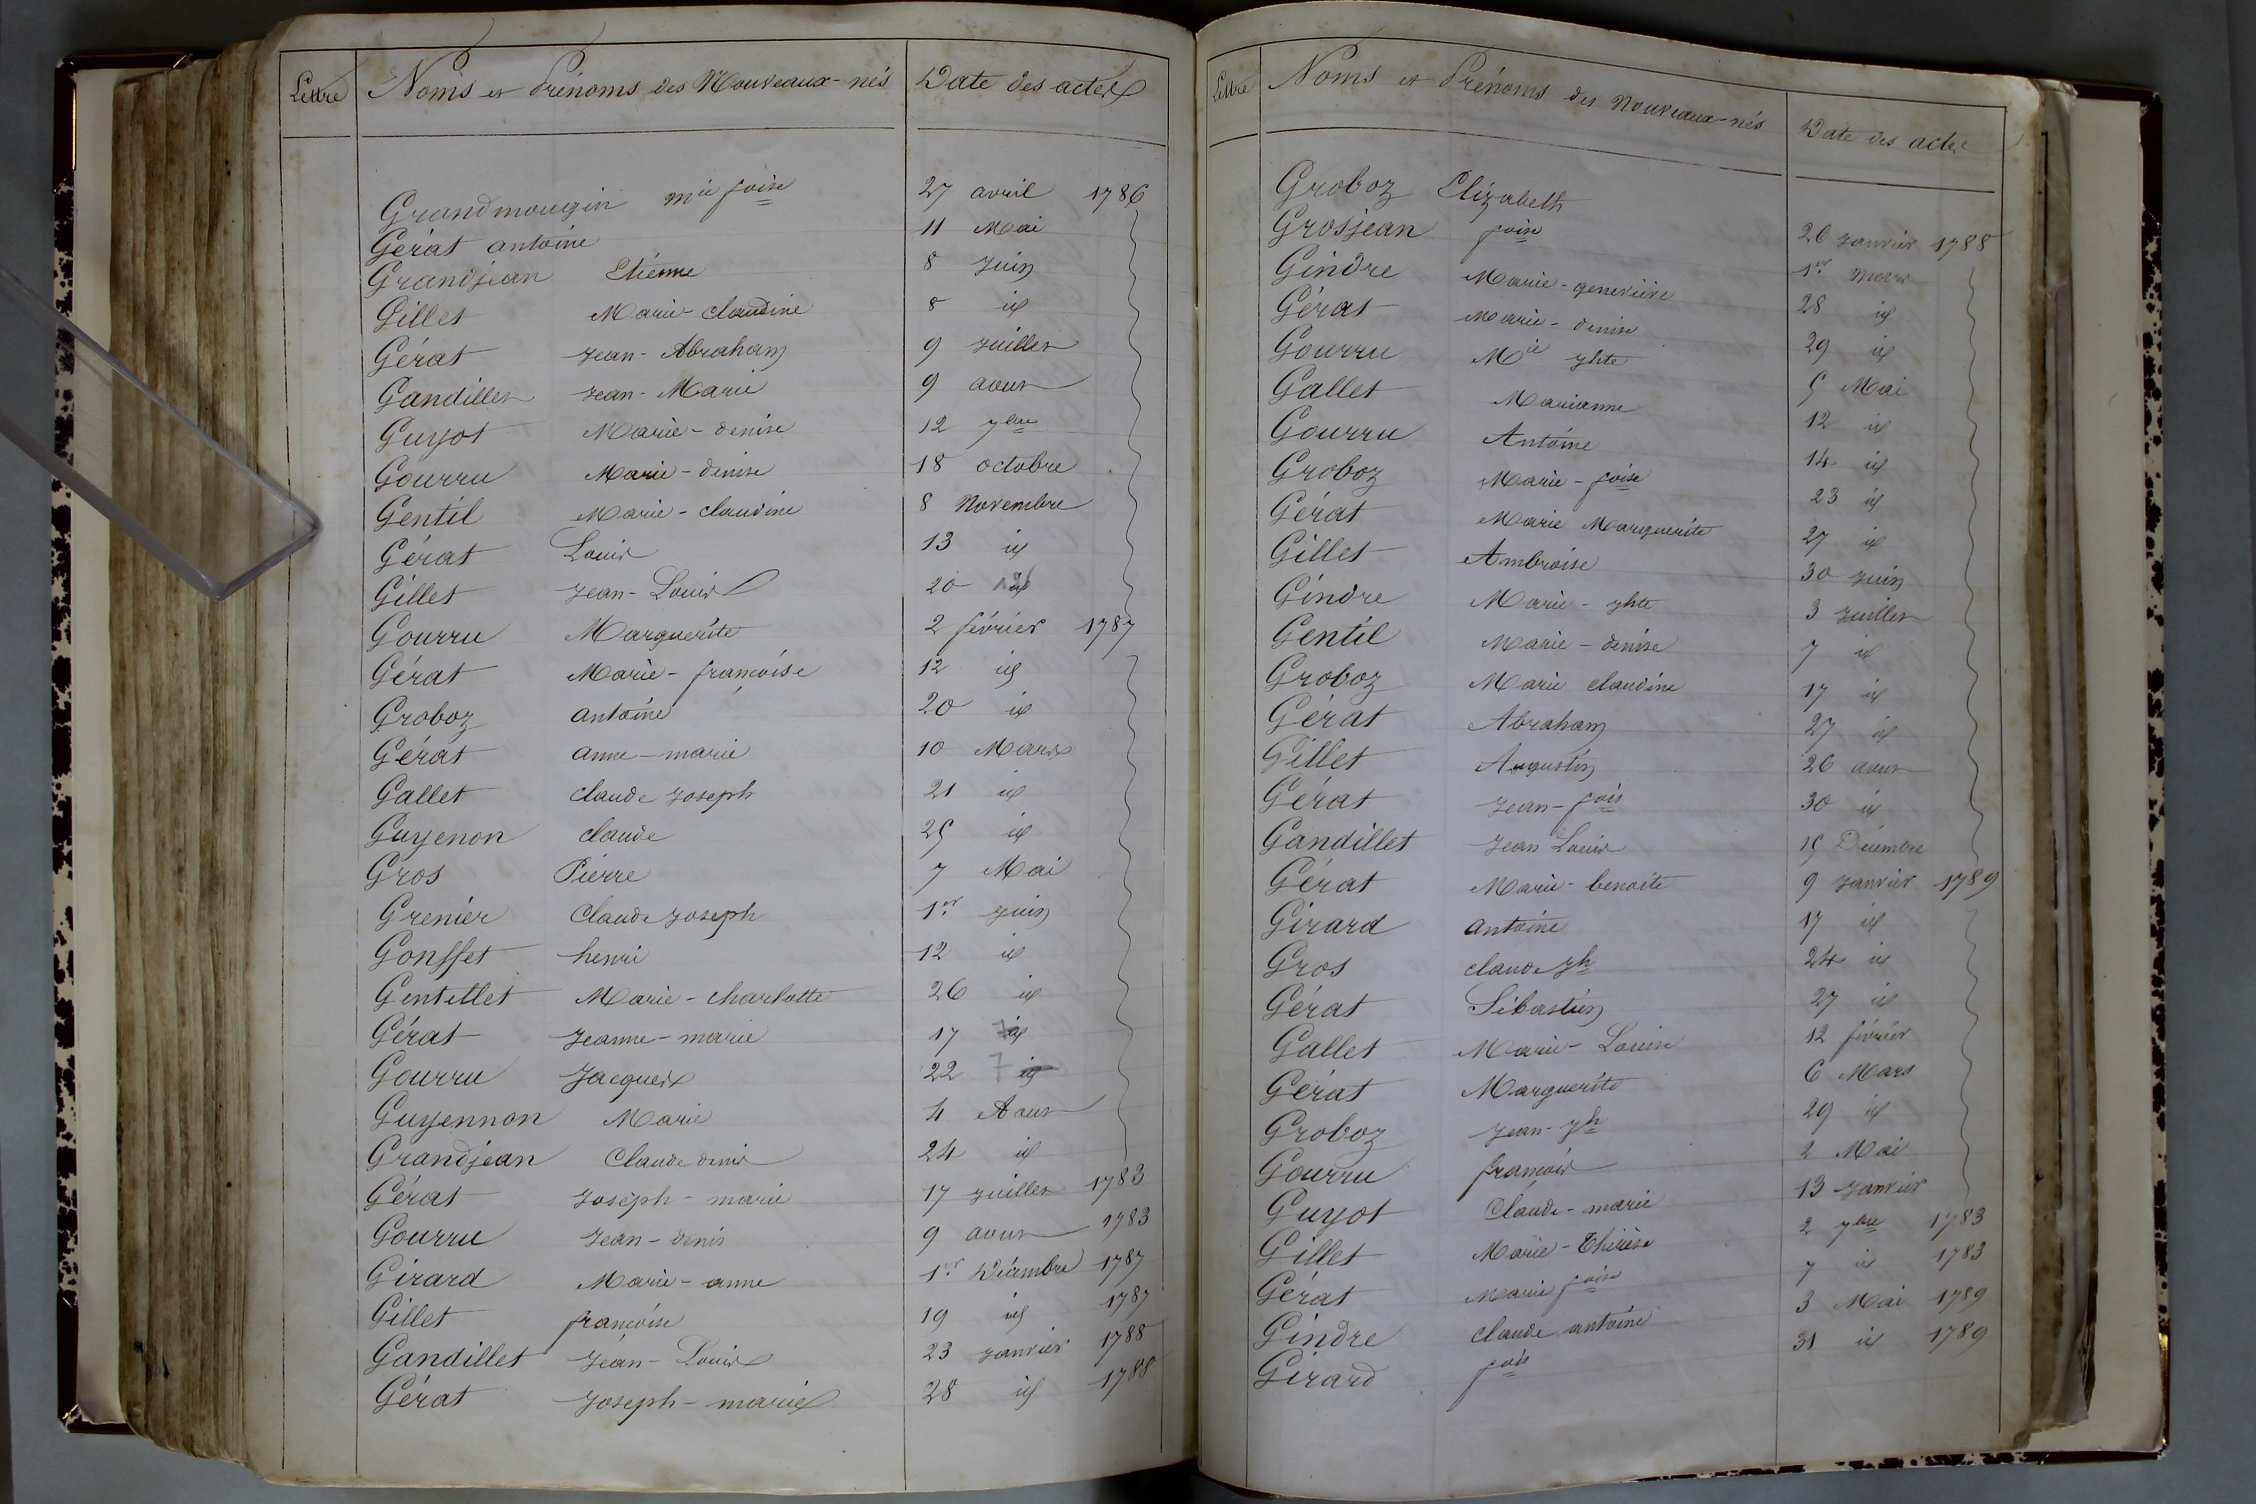 Lettre Noms et Prénoms des Nouveaux-nés Date des actes
Grandmougin mie foise 27 avril 1786
Gérat antoine 11 Mai
Grandjean Etienne 8 juin
Gillet Marie-claudine 8 id
Gérat jean-Abraham 9 juillet
Gandillet jean-Marie 9 aout
Guyot Marie-denise 12 7bre
Gourru Marie-denise 18 octobre
Gentil Marie-claudine 8 Novembre
Gérat Louis 13 id
Gillet jean-Louis 20 id
Gourru Marguerite 2 février 1787
Gérat Marie-françoise 12 id
Groboz antoine 20 id
Gérat anne-marie 10 Mars
Gallet claude joseph 21 id
Guyenon claude 25 id
Gros Pierre 7 Mai
Grenier Claude joseph 1er juin
Gonsset henri 12 id
Gentillet Marie-charlotte 26 id
Gérat jeanne-marie 17 7 id
Gourru jacques 22 7 id
Guyennon Marie 4 Aout
Grandjean Claude denis 24 id
Gérat joseph-marie 17 juillet 1783
Gourru jean-denis 9 aout 1783
Girard Marie-anne 1er Décembre 1787
Gillet françoise 19 id 1787
Gandillet jean-Louis 23 janvier 1788
Gérat joseph-marie 28 id 1788
Lettre Noms et Prénoms des Nouveaux-nés Date des actes
Groboz Elizabeth
Grosjean foise 26 janvier 1788
Gindre Marie-geneviève 1er mars
Gérat Marie-denise 28 id
Gourru Mie jhte 29 id
Gallet Marianne 5 Mai
Gourru Antoine 12 id
Groboz Marie-foise 14 id
Gérat Marie Marguerite 23 id
Gillet Ambroise 27 id
Gindre Marie-jhte 30 juin
Gentil Marie-denise 3 juillet
Groboz Marie claudine 7 id
Gérat Abraham 17 id
Gillet Augustin 27 id
Gérat jean-fois 26 aout
Gandillet jean Louis 30 id
Gérat Marie-benoite 15 Décembre
Girard antoine 9 janvier 1789
Gros claude jh 17 id
Gérat Sébastien 24 id
Gallet Marie-Louise 27 id
Gérat Marguerite 12 février
Groboz jean-jh 6 Mars
Gourru françois 29 id
Guyot Claude-marie 2 Mai
Gillet Marie-Thérèse 13 janvier
Gérat Marie foise 2 7bre 1783
Gindre claude antoine 7 id 1783
Girard fois 3 Mai 1789
31 id 1789